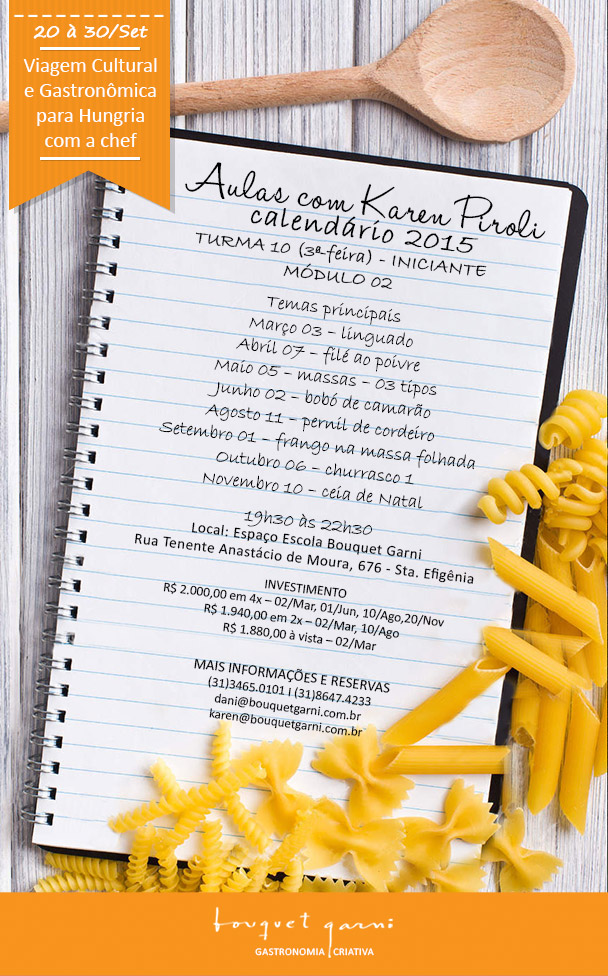 20 à 30/Set
Viagem Cultural
e Gastronômica
para Hungria
com a chef
Aulas com Karen Piroli
calendário 2015
TURMA 10 (3ª-feira) - INICIANTE
MÓDULO 02
Temas principais
Março 03 - linguado
Abril 07 - filé ao poivre
Maio 05 - massas - 03 tipos
Junho 02 - bobó de camarão
Agosto 11 - pernil de cordeiro
Setembro 01 - frango na massa folhada
Outubro 06 - churrasco 1
Novembro 10 - ceia de Natal
19h30 às 22h30
Local: Espaço Escola Bouquet Garni
Rua Tenente Anastácio de Moura, 676 - Sta. Efigênia
INVESTIMENTO
R$ 2.000,00 em 4x – 02/Mar, 01/Jun, 10/Ago,20/Nov
R$ 1.940,00 em 2x – 02/Mar, 10/Ago
R$ 1.880,00 à vista – 02/Mar
MAIS INFORMAÇÕES E RESERVAS
(31)3465.0101 I (31)8647.4233
dani@bouquetgarni.com.br
karen@bouquetgarni.com.br
bouquet garni
GASTRONOMIA CRIATIVA